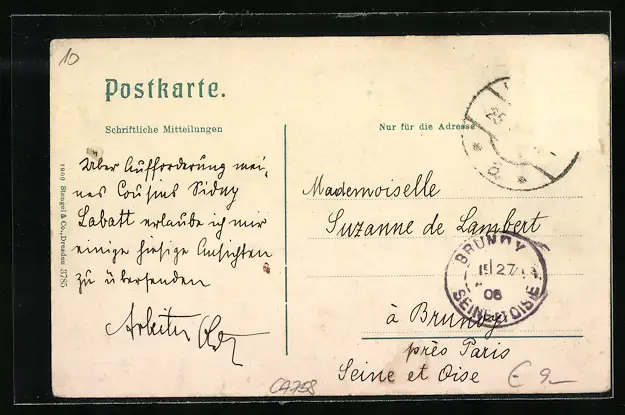 10
Postkarte.
Schriftliche Mitteilungen
Nur für die Adresse
Über Aufforderung mei-
nes Cousins Sidney
Labatt erlaube ich mir
einige hiesige Ansichten
zu übersenden
Mademoiselle
Suzanne de Lambert
à Brunoy
près Paris
Seine et Oise
BRUNOY
15 27
06
SEINE ET OISE
25
b
Stengel & Co., Dresden 3785
CA758
€ 9-